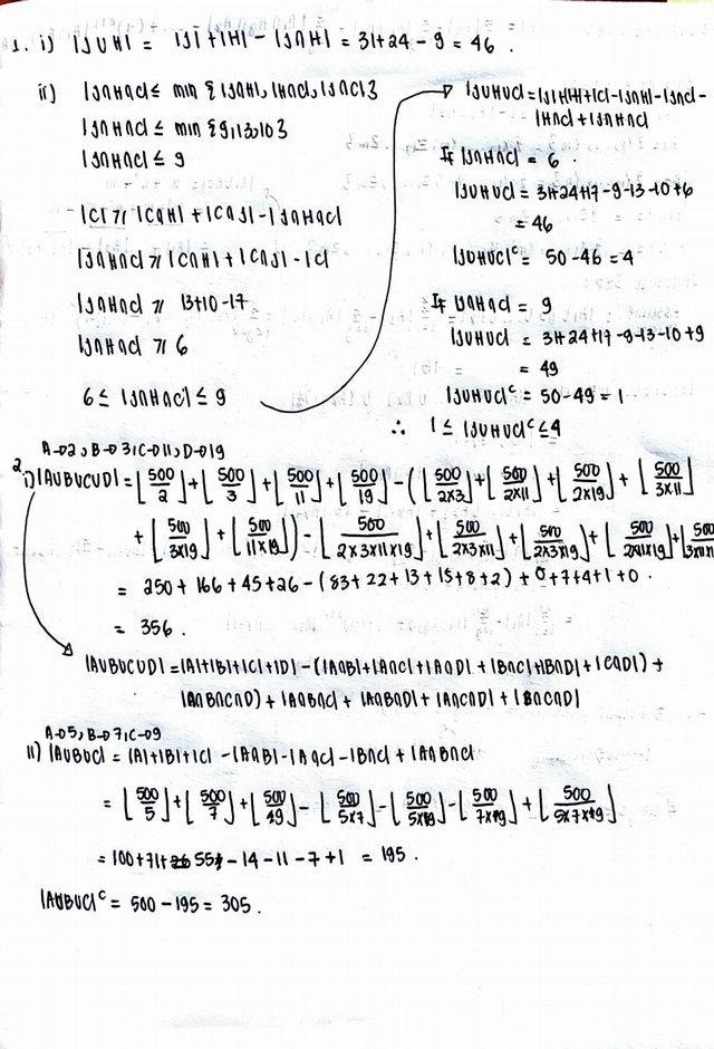 1. i) |J∪H| = |J|+|H| - |J∩H| = 31+24 - 9 = 46 .
ii) |J∩H∩C| ≤ min {|J∩H|, |H∩C|, |J∩C|}
|J∩H∩C| ≤ min {9,13,10}
|J∩H∩C| ≤ 9
|C| ≥ |C∩H| + |C∩J| - |J∩H∩C|
|J∩H∩C| ≥ |C∩H| + |C∩J| - |C|
|J∩H∩C| ≥ 13+10-17
|J∩H∩C| ≥ 6
6 ≤ |J∩H∩C| ≤ 9
|J∪H∪C| = |J|+|H|+|C|-|J∩H|-|J∩C|-
|H∩C|+|J∩H∩C|
If |J∩H∩C| = 6 .
|J∪H∪C| = 31+24+17-9-13-10+6
= 46
|J∪H∪C|ᶜ = 50-46 = 4
If |J∩H∩C| = 9
|J∪H∪C| = 31+24+17-9-13-10+9
= 49
|J∪H∪C|ᶜ = 50-49 = 1
∴ 1 ≤ |J∪H∪C|ᶜ ≤ 4
A→2, B→3, C→11, D→19
2. i) |A∪B∪C∪D| = ⌊500/2⌋+⌊500/3⌋+⌊500/11⌋+⌊500/19⌋-(⌊500/2×3⌋+⌊500/2×11⌋+⌊500/2×19⌋+⌊500/3×11⌋
+⌊500/3×19⌋+⌊500/11×19⌋)-⌊500/2×3×11×19⌋+⌊500/2×3×11⌋+⌊500/2×3×19⌋+⌊500/2×11×19⌋+⌊500
= 250 + 166 + 45 + 26 - (83 + 22 + 13 + 15 + 8 + 2) + 0 + 7 + 4 + 1 + 0 .
= 356 .
|A∪B∪C∪D| = |A|+|B|+|C|+|D| - (|A∩B|+|A∩C|+|A∩D| + |B∩C|+|B∩D| + |C∩D|) +
|A∩B∩C∩D) + |A∩B∩C| + |A∩B∩D| + |A∩C∩D| + |B∩C∩D|
A→5, B→7, C→9
ii) |A∪B∪C| = |A|+|B|+|C| - |A∩B| - |A∩C| - |B∩C| + |A∩B∩C|
= ⌊500/5⌋+⌊500/7⌋+⌊500/9⌋-⌊500/5×7⌋-⌊500/5×9⌋-⌊500/7×9⌋+⌊500/5×7×9⌋
= 100+71+55-14-11-7+1 = 195 .
|A∪B∪C|ᶜ = 500-195 = 305 .